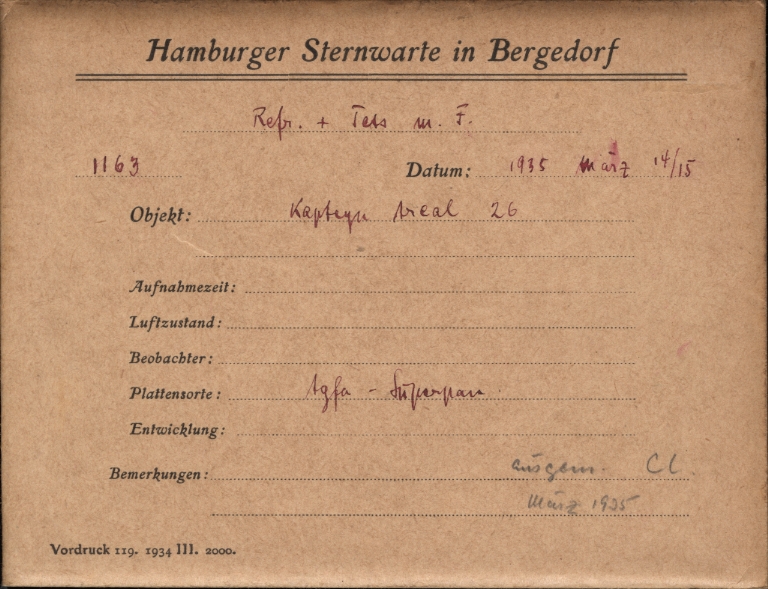 Hamburger Sternwarte in Bergedorf
Refr. + Tess m. F.
1163 Datum: 1935 März 14/15
Objekt: Kapteyn Areal 26
Aufnahmezeit:
Luftzustand:
Beobachter:
Plattensorte: Agfa - Superpan
Entwicklung:
Bemerkungen: ausgem. Cl.
März 1935
Vordruck 119. 1934 III. 2000.